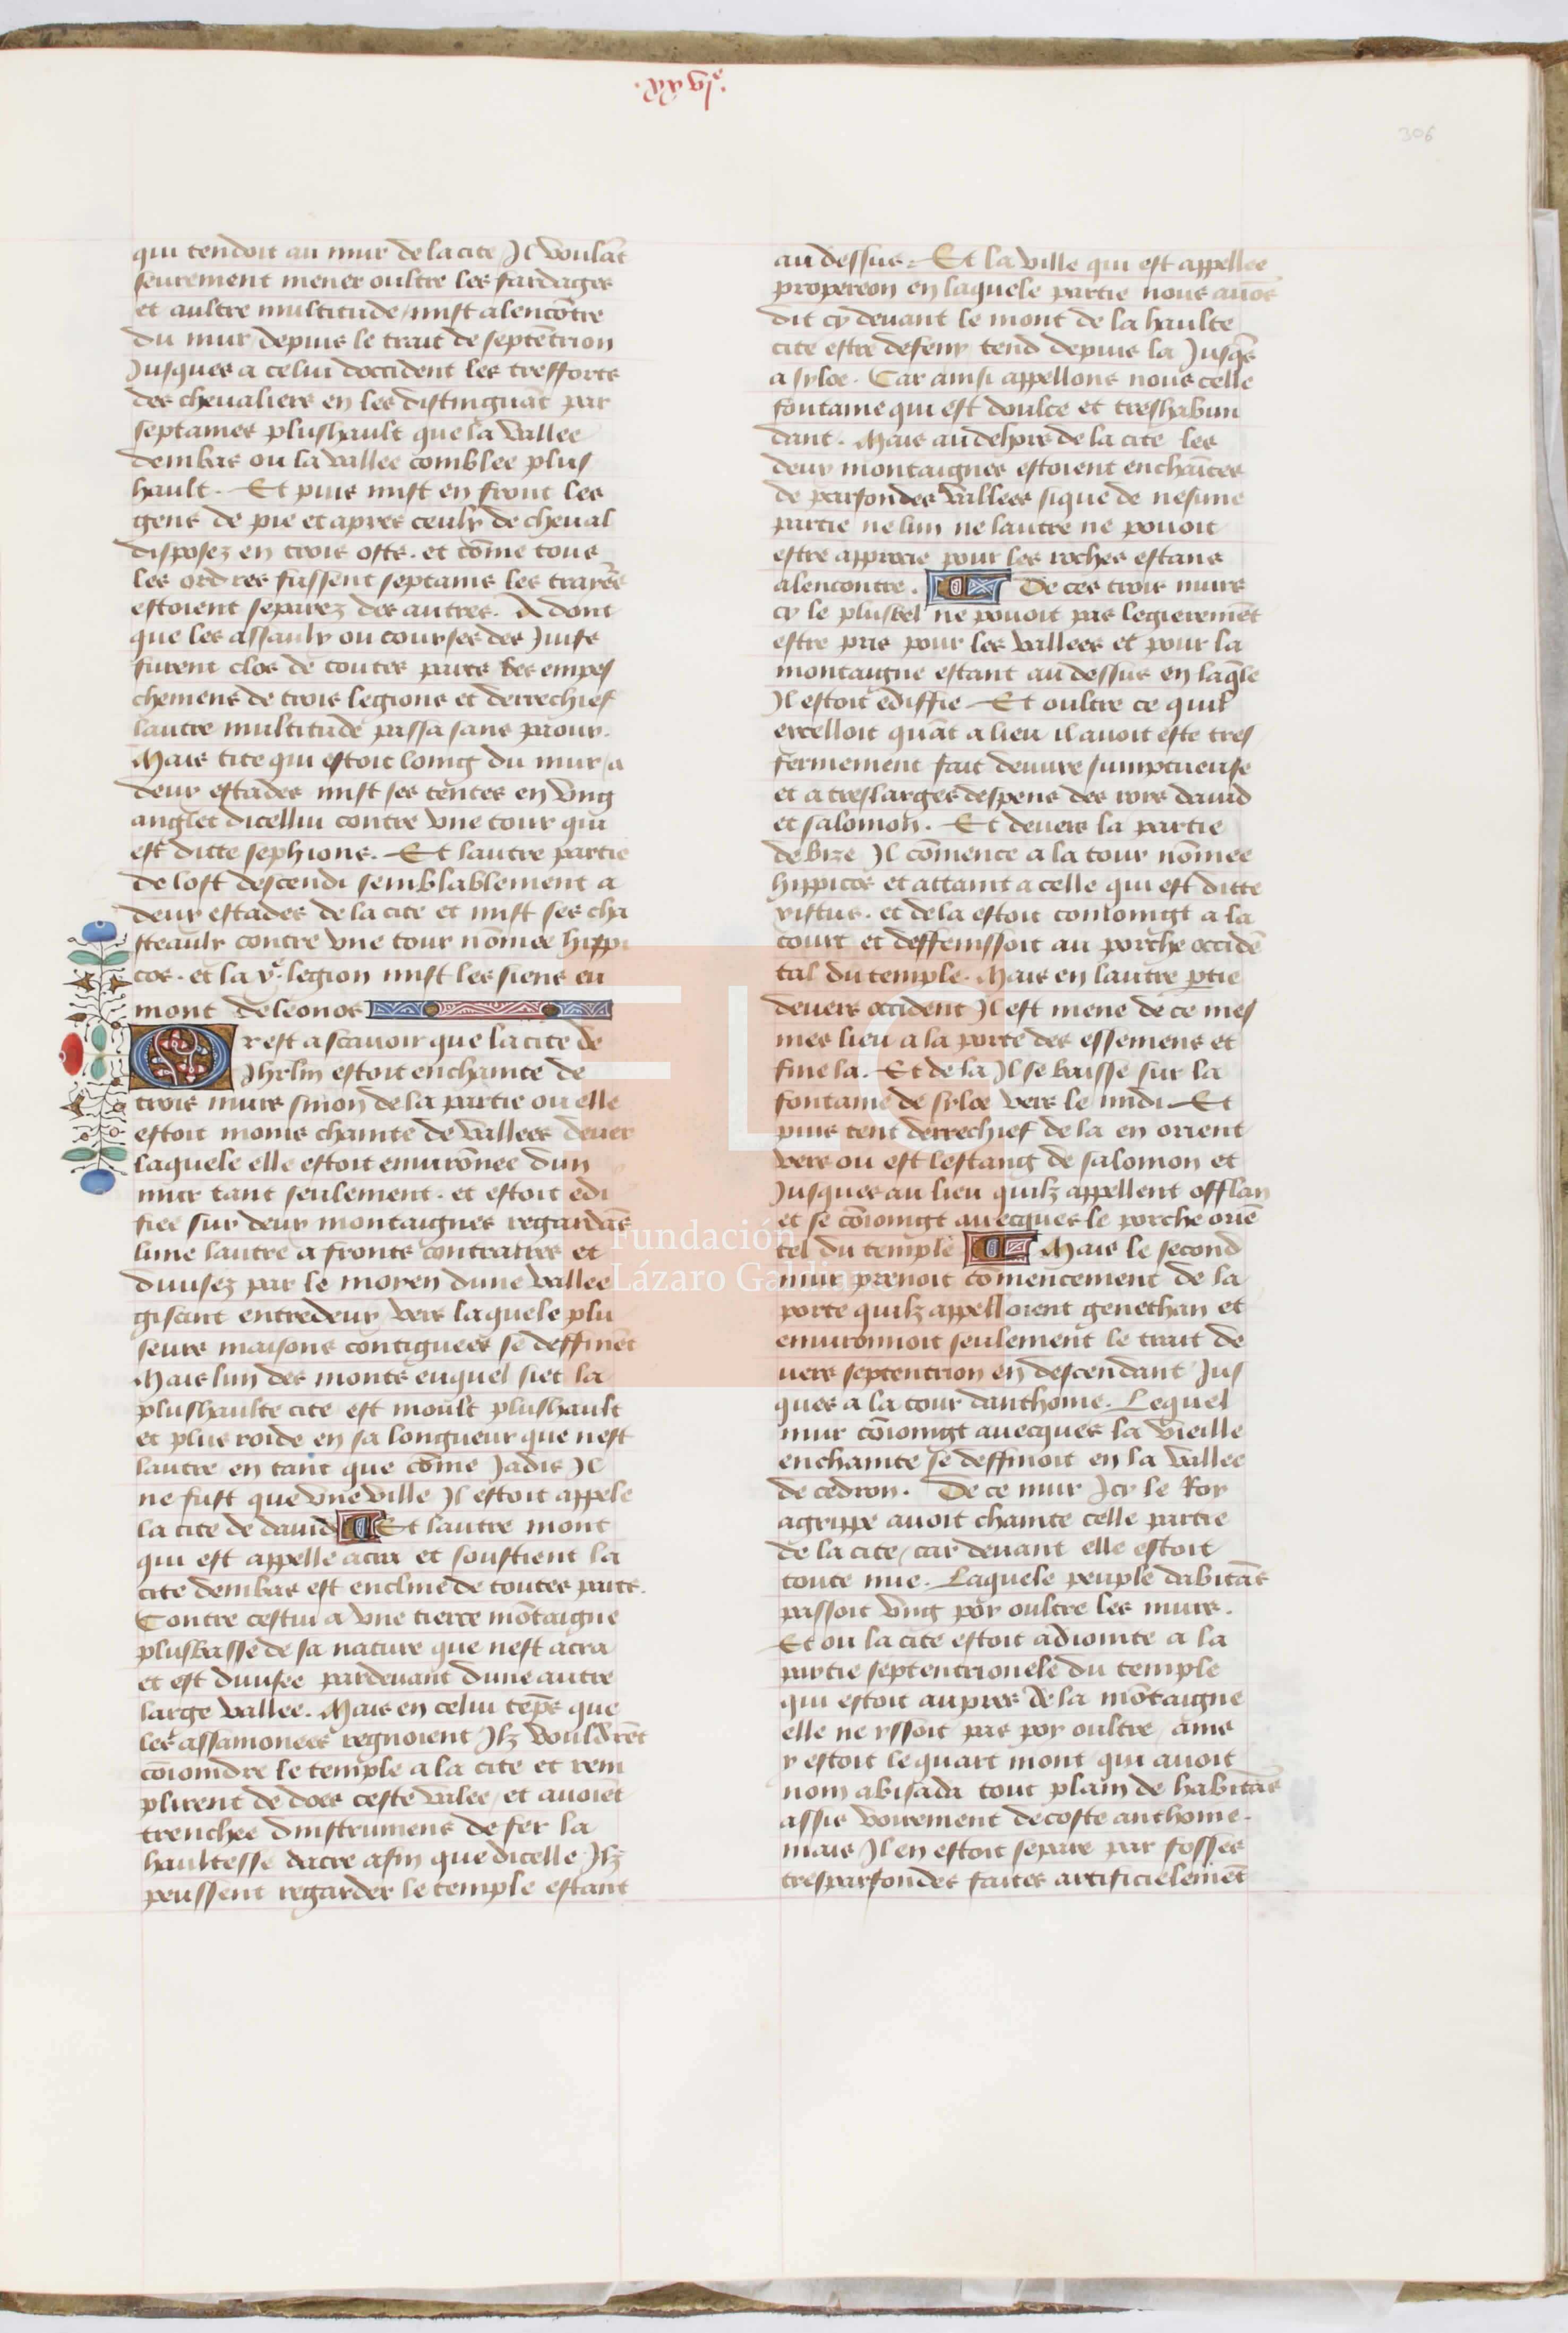 306
qui tendoit au mur de la cite Il voulãt
seurement mener oultre les fardages
et aultre multitude / mist alencõtre
du mur depuis le trait de septẽtrion
Jusques a celui doccident les tresfors
des chevaliers en les distinguãt par
septaines plushault que la vallee
dembas ou la vallee comblee plus
hault. Et puis mist en front les
gens de pie et apres ceulx de cheval
disposez en trois osts. et cõme tous
les ordres fussent septains les trayẽs
estoient separez des autres. A dont
que les assaulx ou courses des Juifs
furent clos de toutes pars les empes
chemens de trois legions et derrechief
lautre multitude passa sans paour.
Mais tite qui estoit loing du mur a
deux estades mist ses tentes en vng
anglet dicellui contre vne tour qui
est ditte sephions. Et lautre partie
de lost descendi semblablement a
deux estades de la cite et mist ses cha
steaulx contre vne tour nõmee hippi
cos. et la v.e legion mist les siens eu
mont deleonos
Or est ascauoir que la cite de
Jhrlm estoit enchainte de
trois murs sinon de la partie ou elle
estoit moins chainte de vallees deuer
laquele elle estoit enuirõnee dun
mur tant seulement. et estoit edi
fiee sur deux montaignes regardãs
lune lautre a fronts contraires et
diuisez par le moyen dune vallee
gisant entredeux vers laquele plu
seurs maisons contigues se deffinẽt
Mais lun des monts euquel siet la
plushaulte cite est moult plushault
et plus roide en sa longueur que nest
lautre en tant que cõme Jadis Il
ne fust que vne ville Il estoit appele
la cite de dauid Et lautre mont
qui est appelle acra et soustient la
cite dembas est encline de toutes pars.
Contre cestui a vne tierce mõtaigne
plusbasse de sa nature que nest acra
et est diuisee pardeuant dune autre
large vallee. Mais en celui tẽps que
les assamonees regnoient Ilz vouldrẽt
coioindre le temple a la cite et rem
plirent de does ceste valee / et auoiẽt
trenchee dinstrumens de fer la
haultesse dacre afin que dicelle Ilz
peussent regarder le temple estant
au dessus. Et la ville qui est appellee
propereon en laquele partie nous auõs
dit cy deuant le mont de la haulte
cite estre defeny tend depuis la Jusq̃s
a syloe. Car ainsi appellons nous celle
fontaine qui est doulce et treshabun
dant. Mais au dehors de la cite les
deux montaignes estoient enchaĩtes
de parfondes vallees sique de nesune
partie ne lun ne lautre ne pouoit
estre approcie pour les roches estans
alencontre. De ces trois murs
cy le plusbel ne pouoit pas legieremẽt
estre pris pour les vallees et pour la
montaigne estant au dessus en laq̃le
Il estoit ediffie. Et oultre ce quil
excelloit quãt a lieu il auoit este tres
fermement fait deuure sumptueuse
et a treslarges despens des rois dauid
et salomon. Et deuers la partie
de bize Il cõmence a la tour nõmee
hippicos et attaint a celle qui est ditte
vistus. et de la estoit conioingt a la
court et deffenissoit au porche occidẽ
tal du temple. Mais en lautre ptie
deuers occident Il est mene de ce mes
mes lieu a la porte des essemens et
fine la. Et de la Il se baisse sur la
fontaine de syloe vers le midi Et
puis tent derrechief de la en orient
vers ou est lestang de salomon et
Jusques au lieu quilz appellent offlan
et se cõioingt auecques le porche oriẽ
tel du temple Mais le second
mur prenoit cõmencement de la
porte quilz appelloient genethan et
enuironnoit seulement le trait de
uers septentrion en descendant Jus
ques a la tour danthoine. Lequel
mur cõioingt auecques la vieille
enchainte se deffinoit en la vallee
de cedron. De ce mur Icy le Roy
agrippe auoit chainte celle partie
de la cite / car deuant elle estoit
toute nue. Laquele peuple dabitãs
passoit vng poy oultre les murs.
Et ou la cite estoit adiointe a la
partie septentrionele du temple
qui estoit aupres de la mõtaigne
elle ne yssoit pas poy oultre / ains
y estoit le quart mont qui auoit
nom abisada tout plain de habitãs
assis voirement decoste anthoine.
mais Il en estoit separe par fosses
tresparfondes faites artificielemẽt
Fundación
Lázaro Galdiano